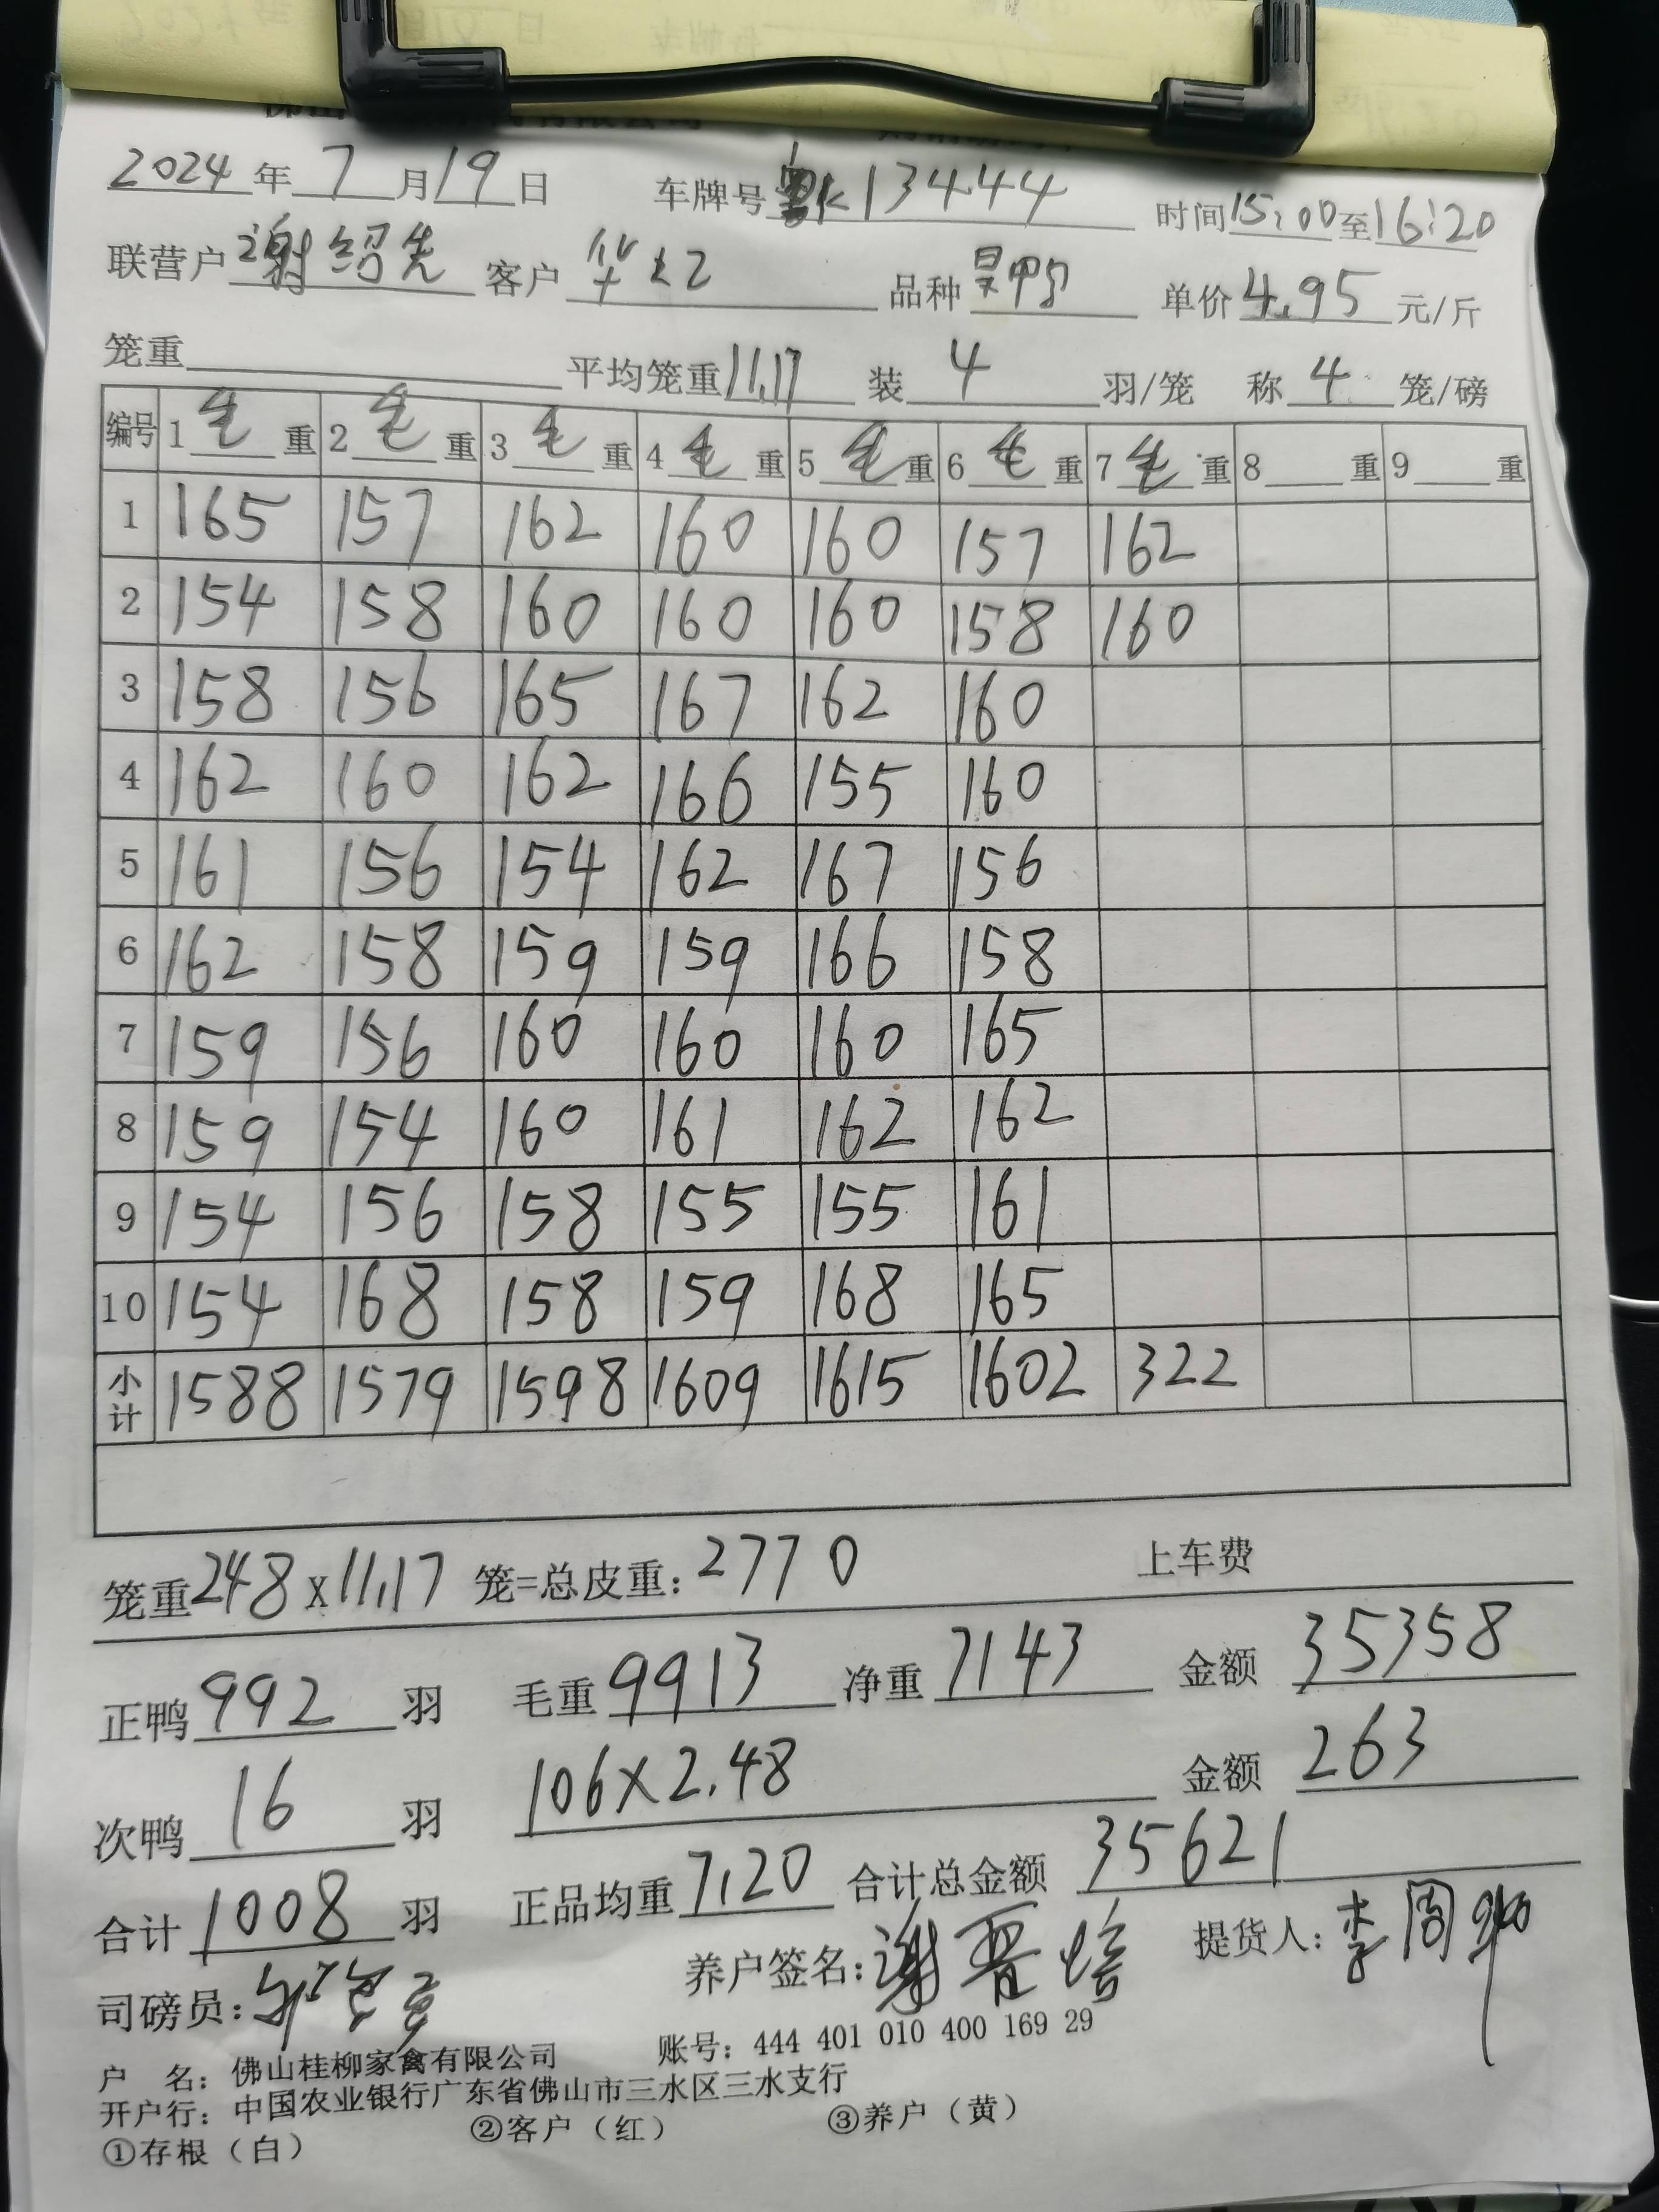 2024年7月19日 车牌号粤K13444 时间15:00至16:20
联营户谢绍先 客户华 品种 单价4.95元/斤
笼重 平均笼重11.17 装4羽/笼 称4笼/磅
编号 1毛重 2毛重 3毛重 4毛重 5毛重 6毛重 7毛重 8重 9重
1 165 157 162 160 160 157 162
2 154 158 160 160 160 158 160
3 158 156 165 167 162 160
4 162 160 162 166 155 160
5 161 156 154 162 167 156
6 162 158 159 159 166 158
7 159 156 160 160 160 165
8 159 154 160 161 162 162
9 154 156 158 155 155 161
10 154 168 158 159 168 165
小计 1588 1579 1598 1609 1615 1602 322
笼重248x11.17笼=总皮重:2770 上车费
正鸭992羽 毛重9913 净重7143 金额35358
次鸭16羽 106×2.48 金额263
合计1008羽 正品均重7.20 合计总金额35621
司磅员: 养户签名:谢晋焙 提货人:李周
户 名:佛山桂柳家禽有限公司 账号:444 401 010 400 169 29
开户行:中国农业银行广东省佛山市三水区三水支行
①存根(白) ②客户(红) ③养户(黄)